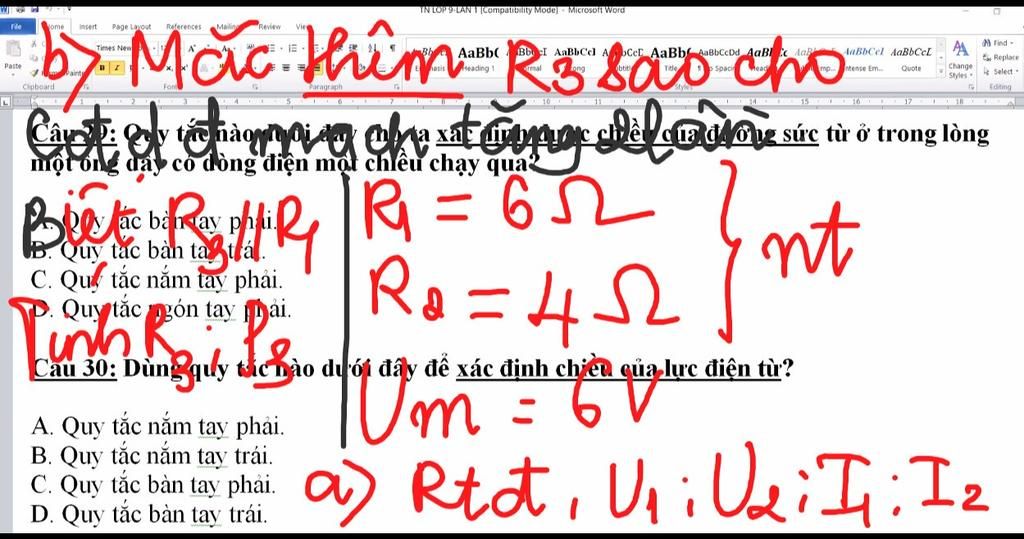 TN LOP 9-LAN 1 [Compatibility Mode] - Microsoft Word
File Home Insert Page Layout References Mailings Review View
Paste Clipboard Font Paragraph Change Styles Find Replace Select Editing
b) Mắc thêm R3 sao cho
Cđdđ mạch tăng 2 lần
Câu 29: Quy tắc nào dưới đây cho ta xác định được chiều của đường sức từ ở trong lòng
một ống dây có dòng điện một chiều chạy qua?
A. Quy tắc bàn tay phải.
B. Quy tắc bàn tay trái.
C. Quy tắc nắm tay phải.
D. Quy tắc ngón tay phải.
Biết R3 // R1
Tính R3; P3
R1 = 6 Ω
R2 = 4 Ω
nt
Um = 6V
a) Rtđ, U1; U2; I1; I2
Câu 30: Dùng quy tắc nào dưới đây để xác định chiều của lực điện từ?
A. Quy tắc nắm tay phải.
B. Quy tắc nắm tay trái.
C. Quy tắc bàn tay phải.
D. Quy tắc bàn tay trái.